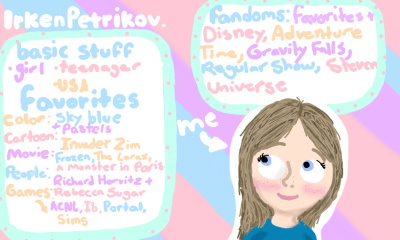 IrkenPetrikov.
basic stuff
•girl •teenager
•USA
Favorites
Color: Sky blue
+ Pastels
Cartoon: Invader Zim
Movie: Frozen, The Lorax,
a Monster in Paris
People: Richard Horvitz +
Rebecca Sugar
Games: ACNL, Ib, Portal,
Sims
Fandoms: Favorites+
Disney, Adventure
Time, Gravity Falls,
Regular Show, Steven
Universe
me